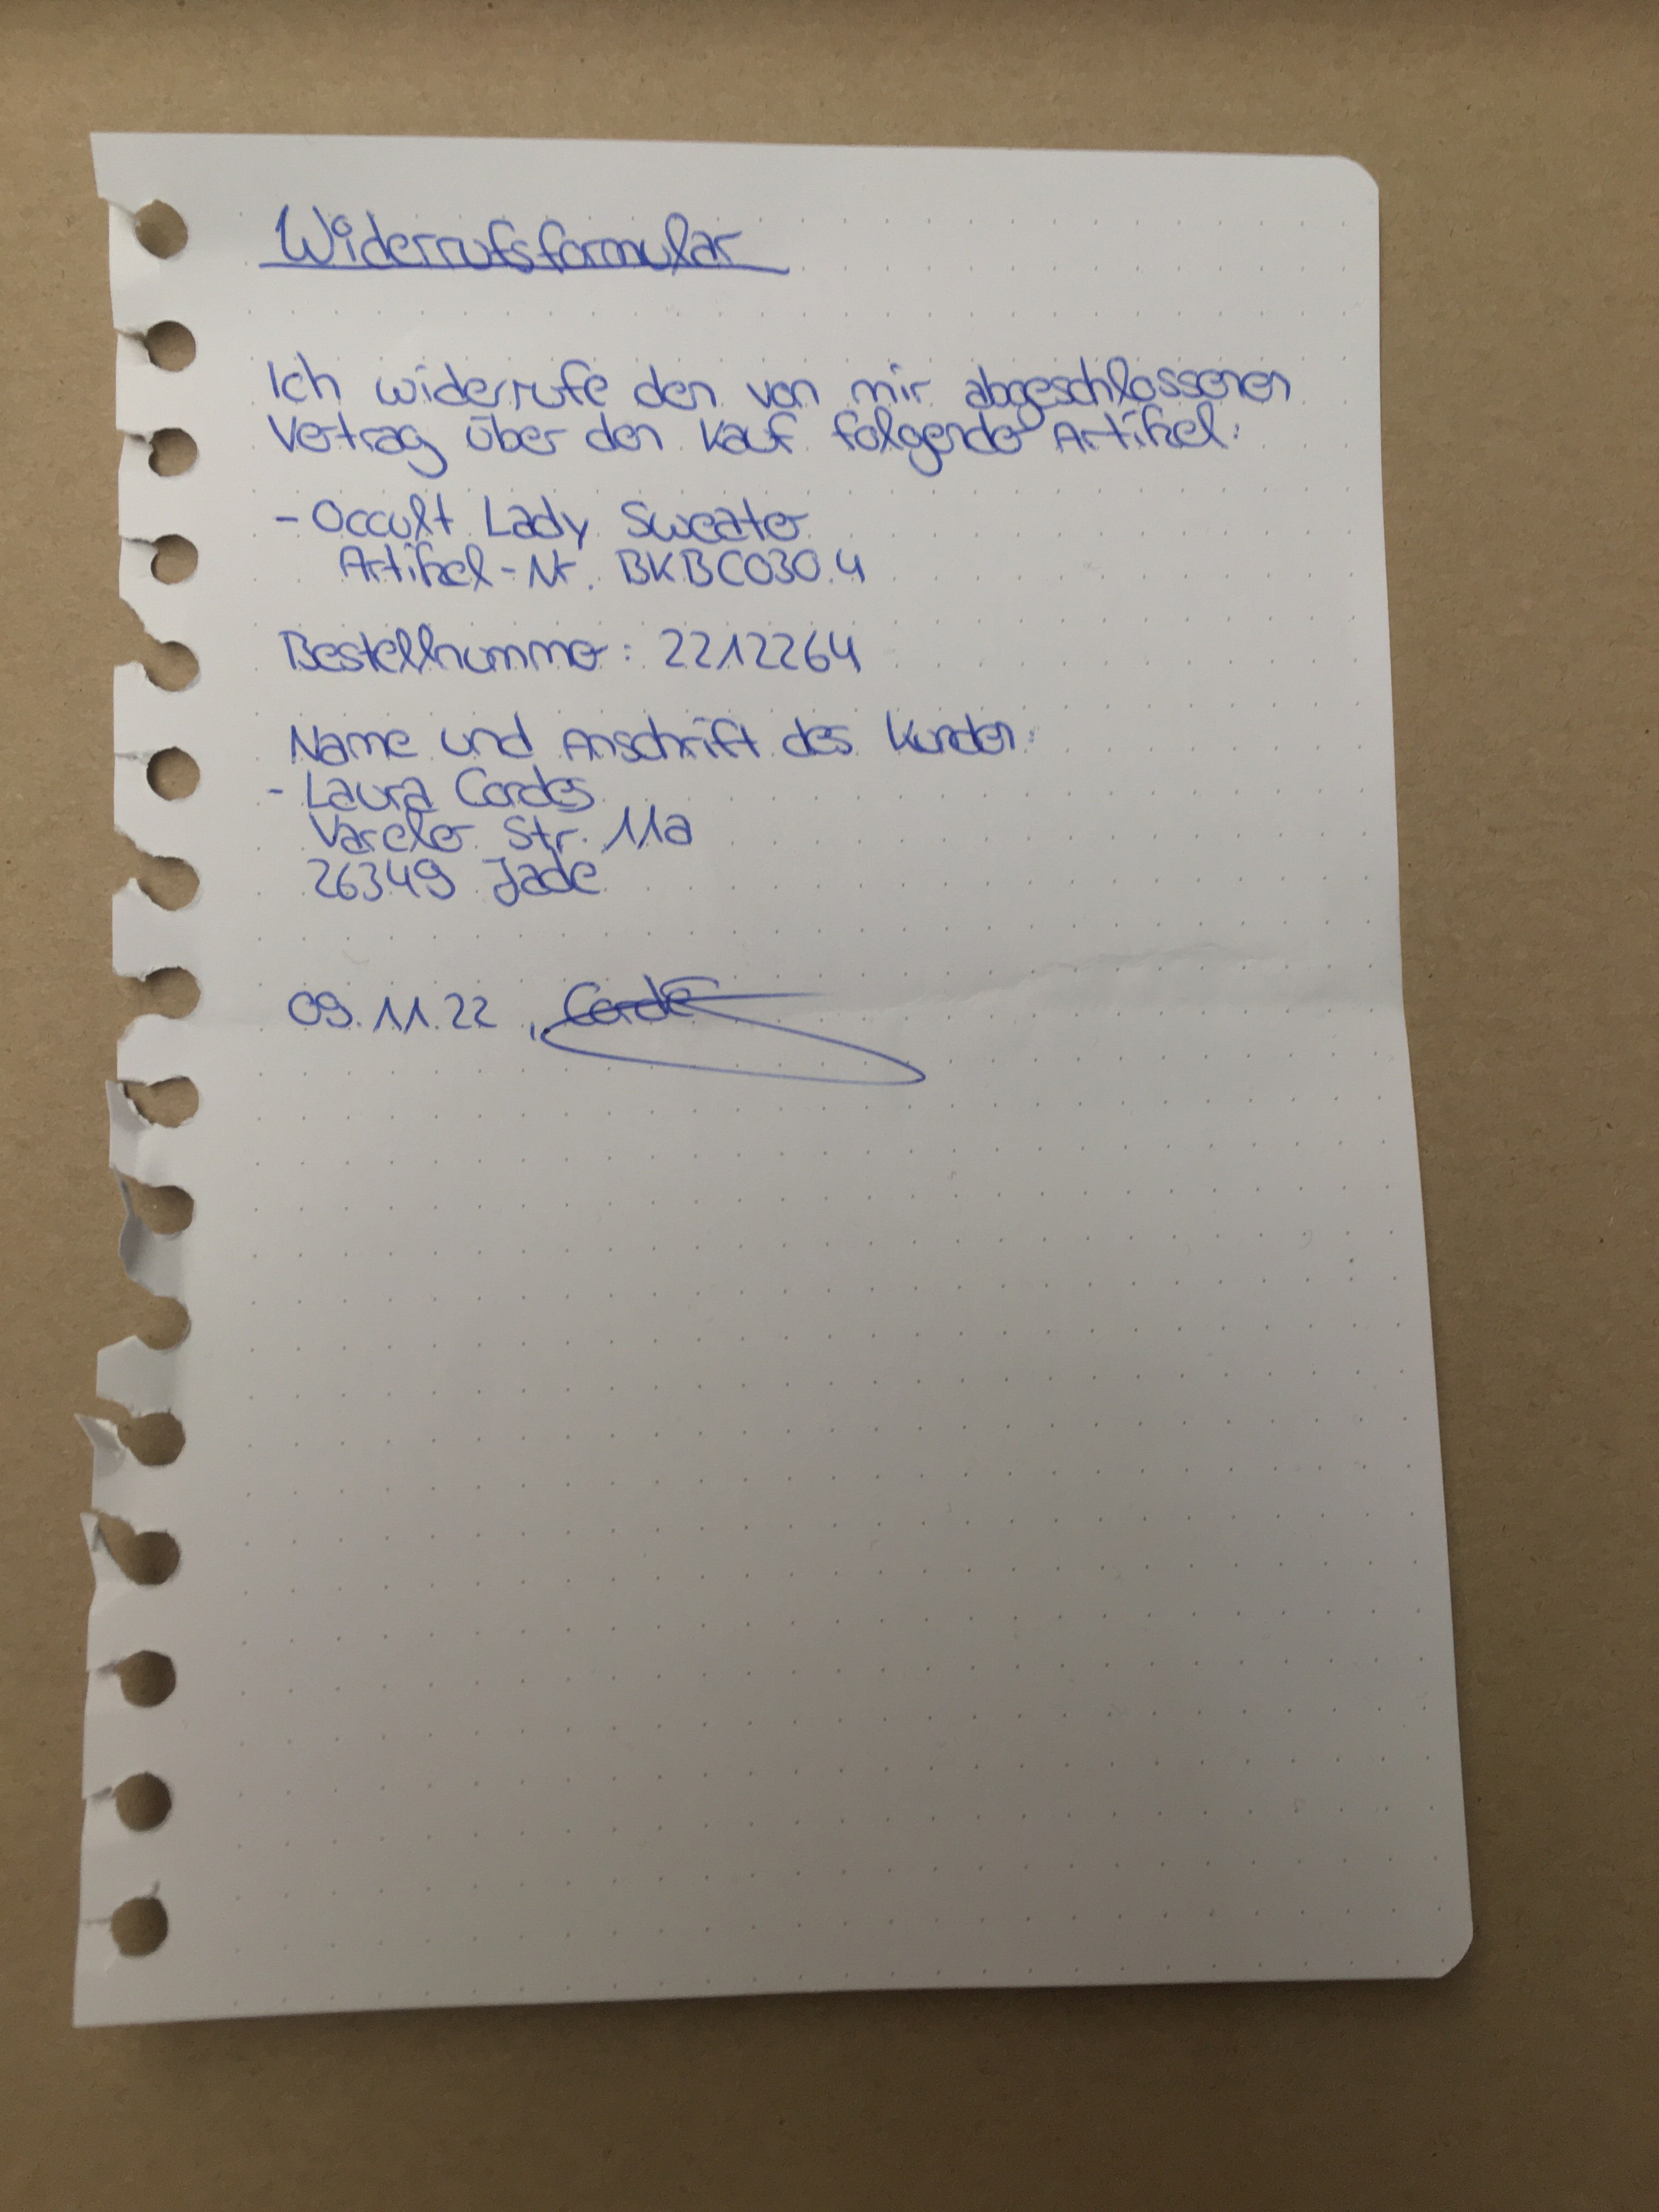 Widerrufsformular
Ich widerrufe den von mir abgeschlossenen
Vertrag über den Kauf folgender Artikel:
- Occult Lady Sweater
Artikel-Nr. BKBC030.4
Bestellnummer: 2212264
Name und Anschrift des Kunden:
- Laura Cordes
Vareler Str. 11a
26349 Jade
09.11.22, Cordes